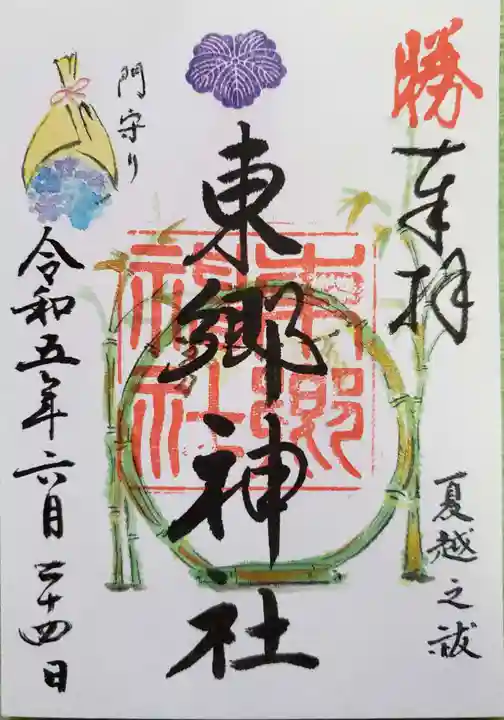 勝
奉拝
夏越之祓
東郷神社
東郷
神社
門守り
令和五年六月二十四日